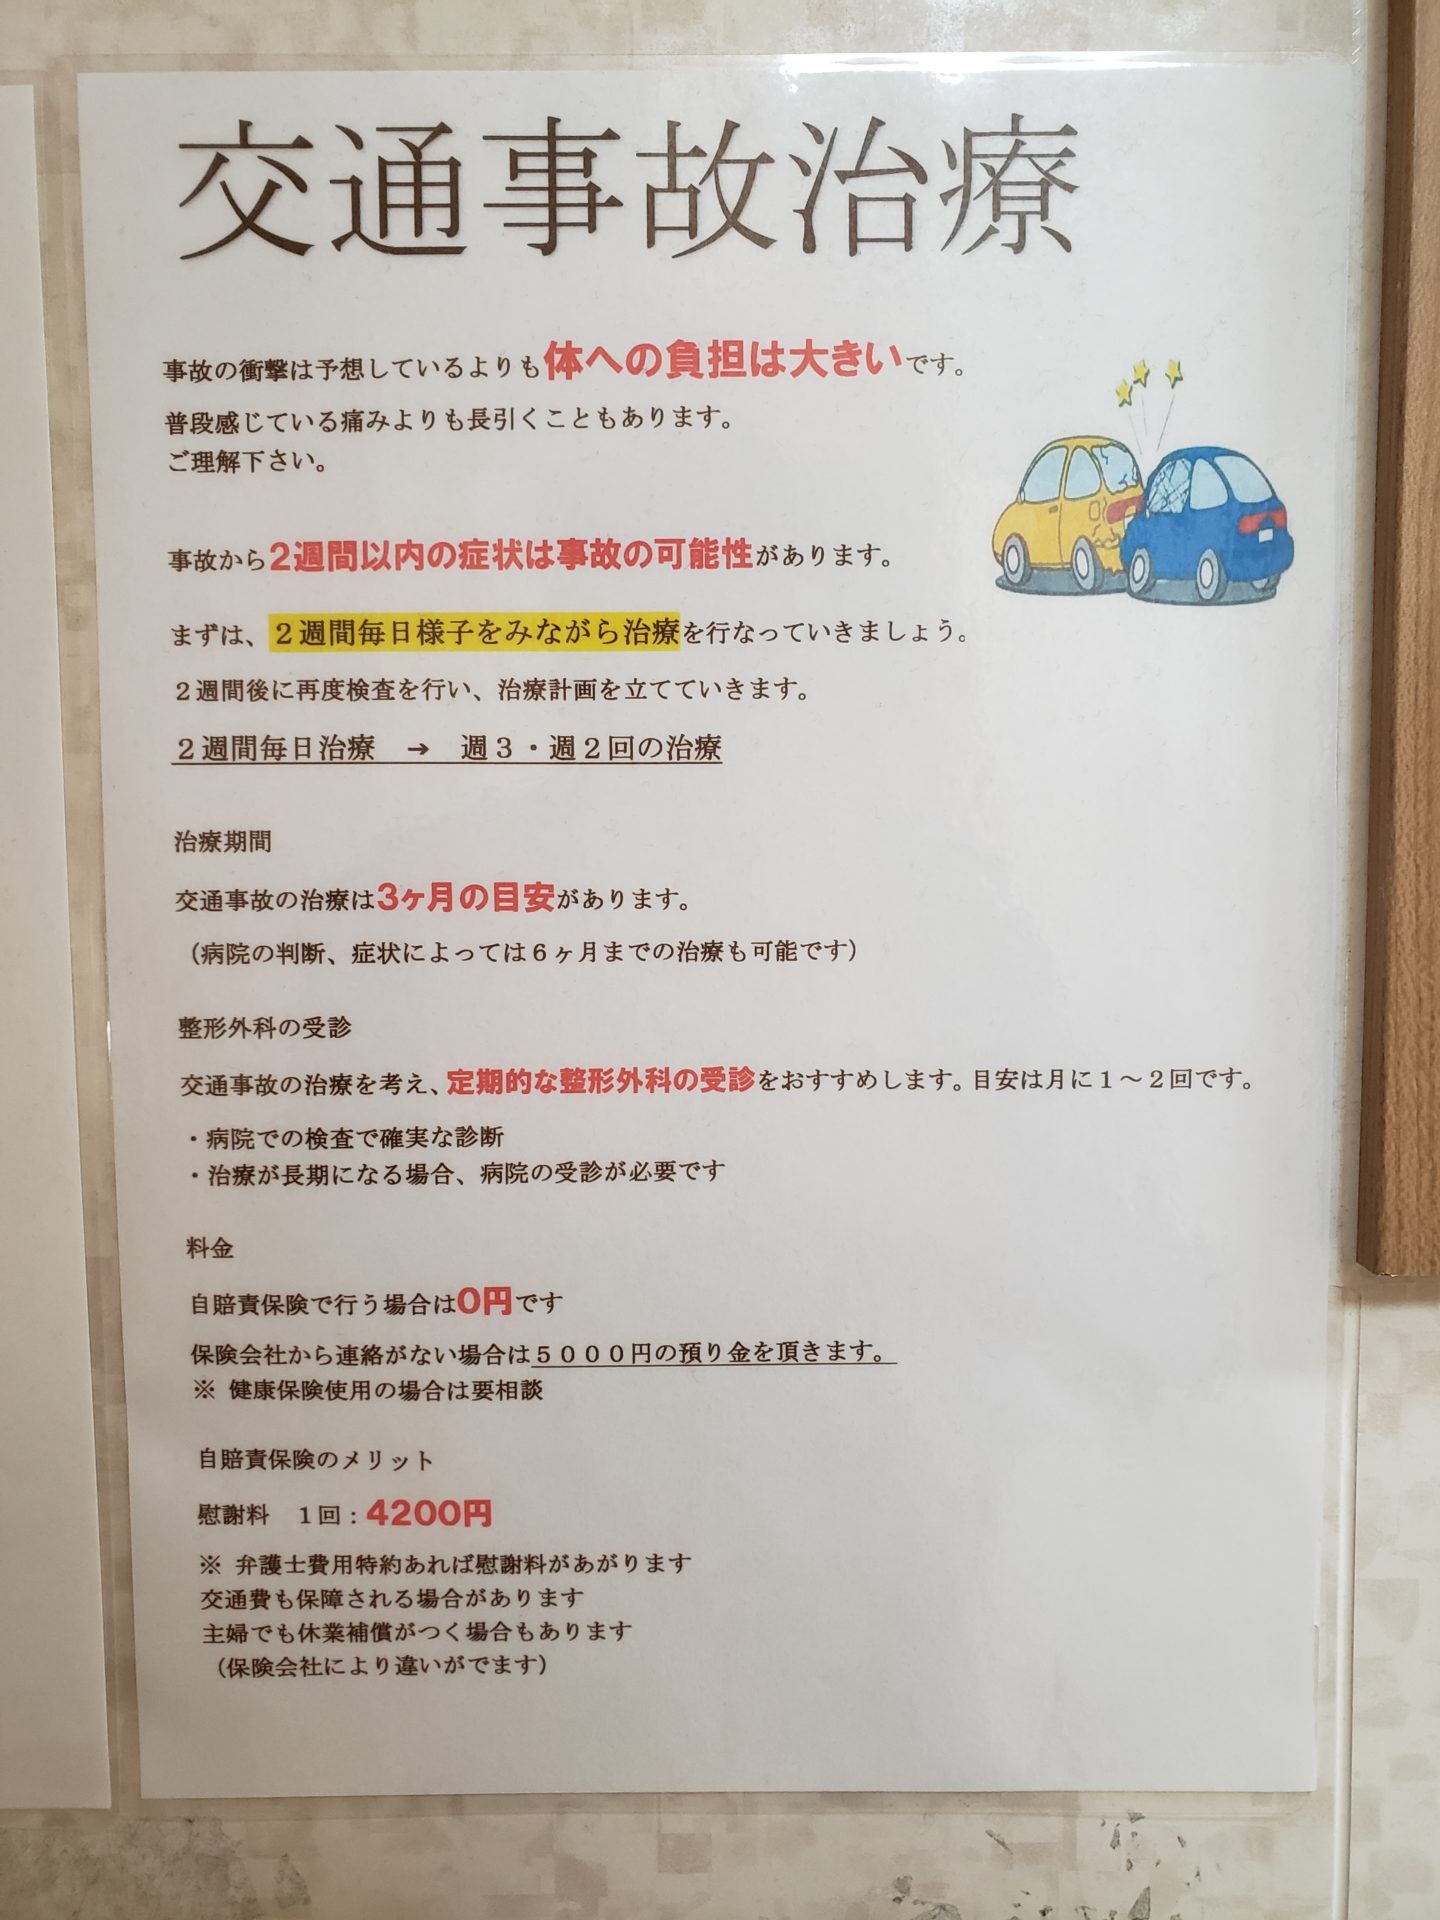 交通事故治療
事故の衝撃は予想しているよりも体への負担は大きいです。
普段感じている痛みよりも長引くこともあります。
ご理解下さい。
事故から2週間以内の症状は事故の可能性があります。
まずは、２週間毎日様子をみながら治療を行なっていきましょう。
２週間後に再度検査を行い、治療計画を立てていきます。
２週間毎日治療　→　週３・週２回の治療
治療期間
交通事故の治療は3ヶ月の目安があります。
（病院の判断、症状によっては６ヶ月までの治療も可能です）
整形外科の受診
交通事故の治療を考え、定期的な整形外科の受診をおすすめします。目安は月に１～２回です。
・病院での検査で確実な診断
・治療が長期になる場合、病院の受診が必要です
料金
自賠責保険で行う場合は0円です
保険会社から連絡がない場合は５０００円の預り金を頂きます。
※ 健康保険使用の場合は要相談
自賠責保険のメリット
慰謝料　１回：4200円
※ 弁護士費用特約あれば慰謝料があがります
交通費も保障される場合があります
主婦でも休業補償がつく場合もあります
（保険会社により違いがでます）